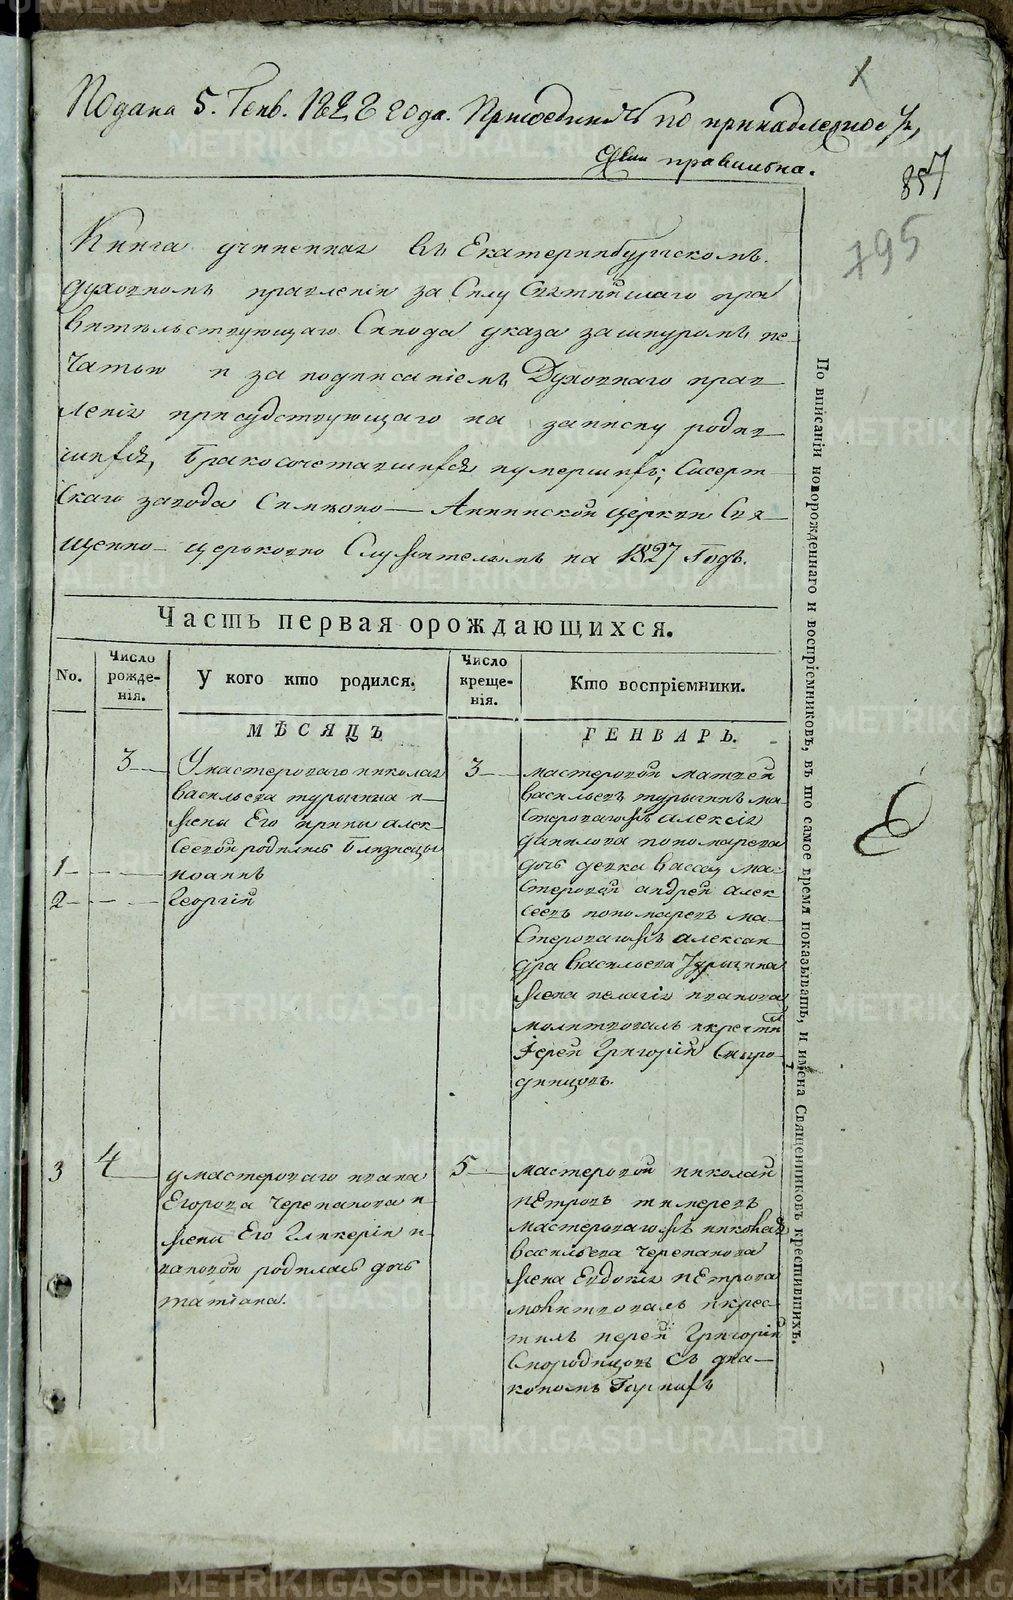 Подана 5. Генв. 1828 года. Присоединить по принадлежнос
правильна.
857
795
Книга учиненная въ Екатеринбургскомъ
духовномъ правленіи за Силу Святѣйшаго пра
вительствующаго Синода указа зашнуромъ пе-
чатью и за подписаніемъ Духовнаго прав
ленія присудствующаго на записку родив
шихся, бракосочетавшихся иумершихъ; Сысерт
скаго завода Симеоно-Аннинской Церкви Свя-
щенно-церьковно Служителямъ на 1827 Годъ.
Часть первая орождающихся.
No.
Число рожде-нія.
У кого кто родился.
Число креще-нія.
Кто воспріемники.
МѢСЯЦЪ
ГЕНВАРЬ.
3
Умастероваго николая
васильева турыгина и
жены Его ирины алек
сеевой родились близнецы
1
иоаннъ
2
Георгій
3
мастеровой матвей
васильевъ турыгинъ ма
стероважъ алексія
данилова пономарева
дочь девка васса, ма
стеровой андрей алек
сеевъ пономаревъ ма
стероважъ алексан
дра васильева Турыгина
жена пелагія иванова
молитвовалъ икрести
Іерей Григорій Сморо
динцовъ.
3
4
умастероваго ивана
Егорова черепанова и
жены Его Гликеріи и
вановой родилась дочь
татіана.
5
мастеровой николай
пЕтровъ
мастероважъ николая
васильева черепанова
жена Евдокія пЕтрова
молитвовалъ икрес
тилъ иерей Григорій
Смородинцовъ съ диа
кономъ
По вписаніи новорожденнаго и воспріемниковъ, въ то самое время показывать, и имена Священниковъ крестившихъ.
METRIKI.GASO-URAL.RU